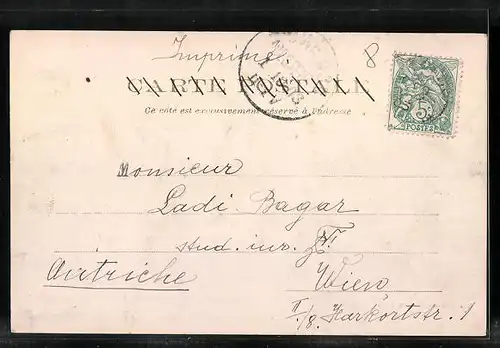 Imprimé
8
CARTE POSTALE
Ce côté est exclusivement réservé à l'adresse
5
POSTES
Monsieur
Ladi Bagar
stud. iur.
Autriche
Wien
II./8. Harkortstr. 1